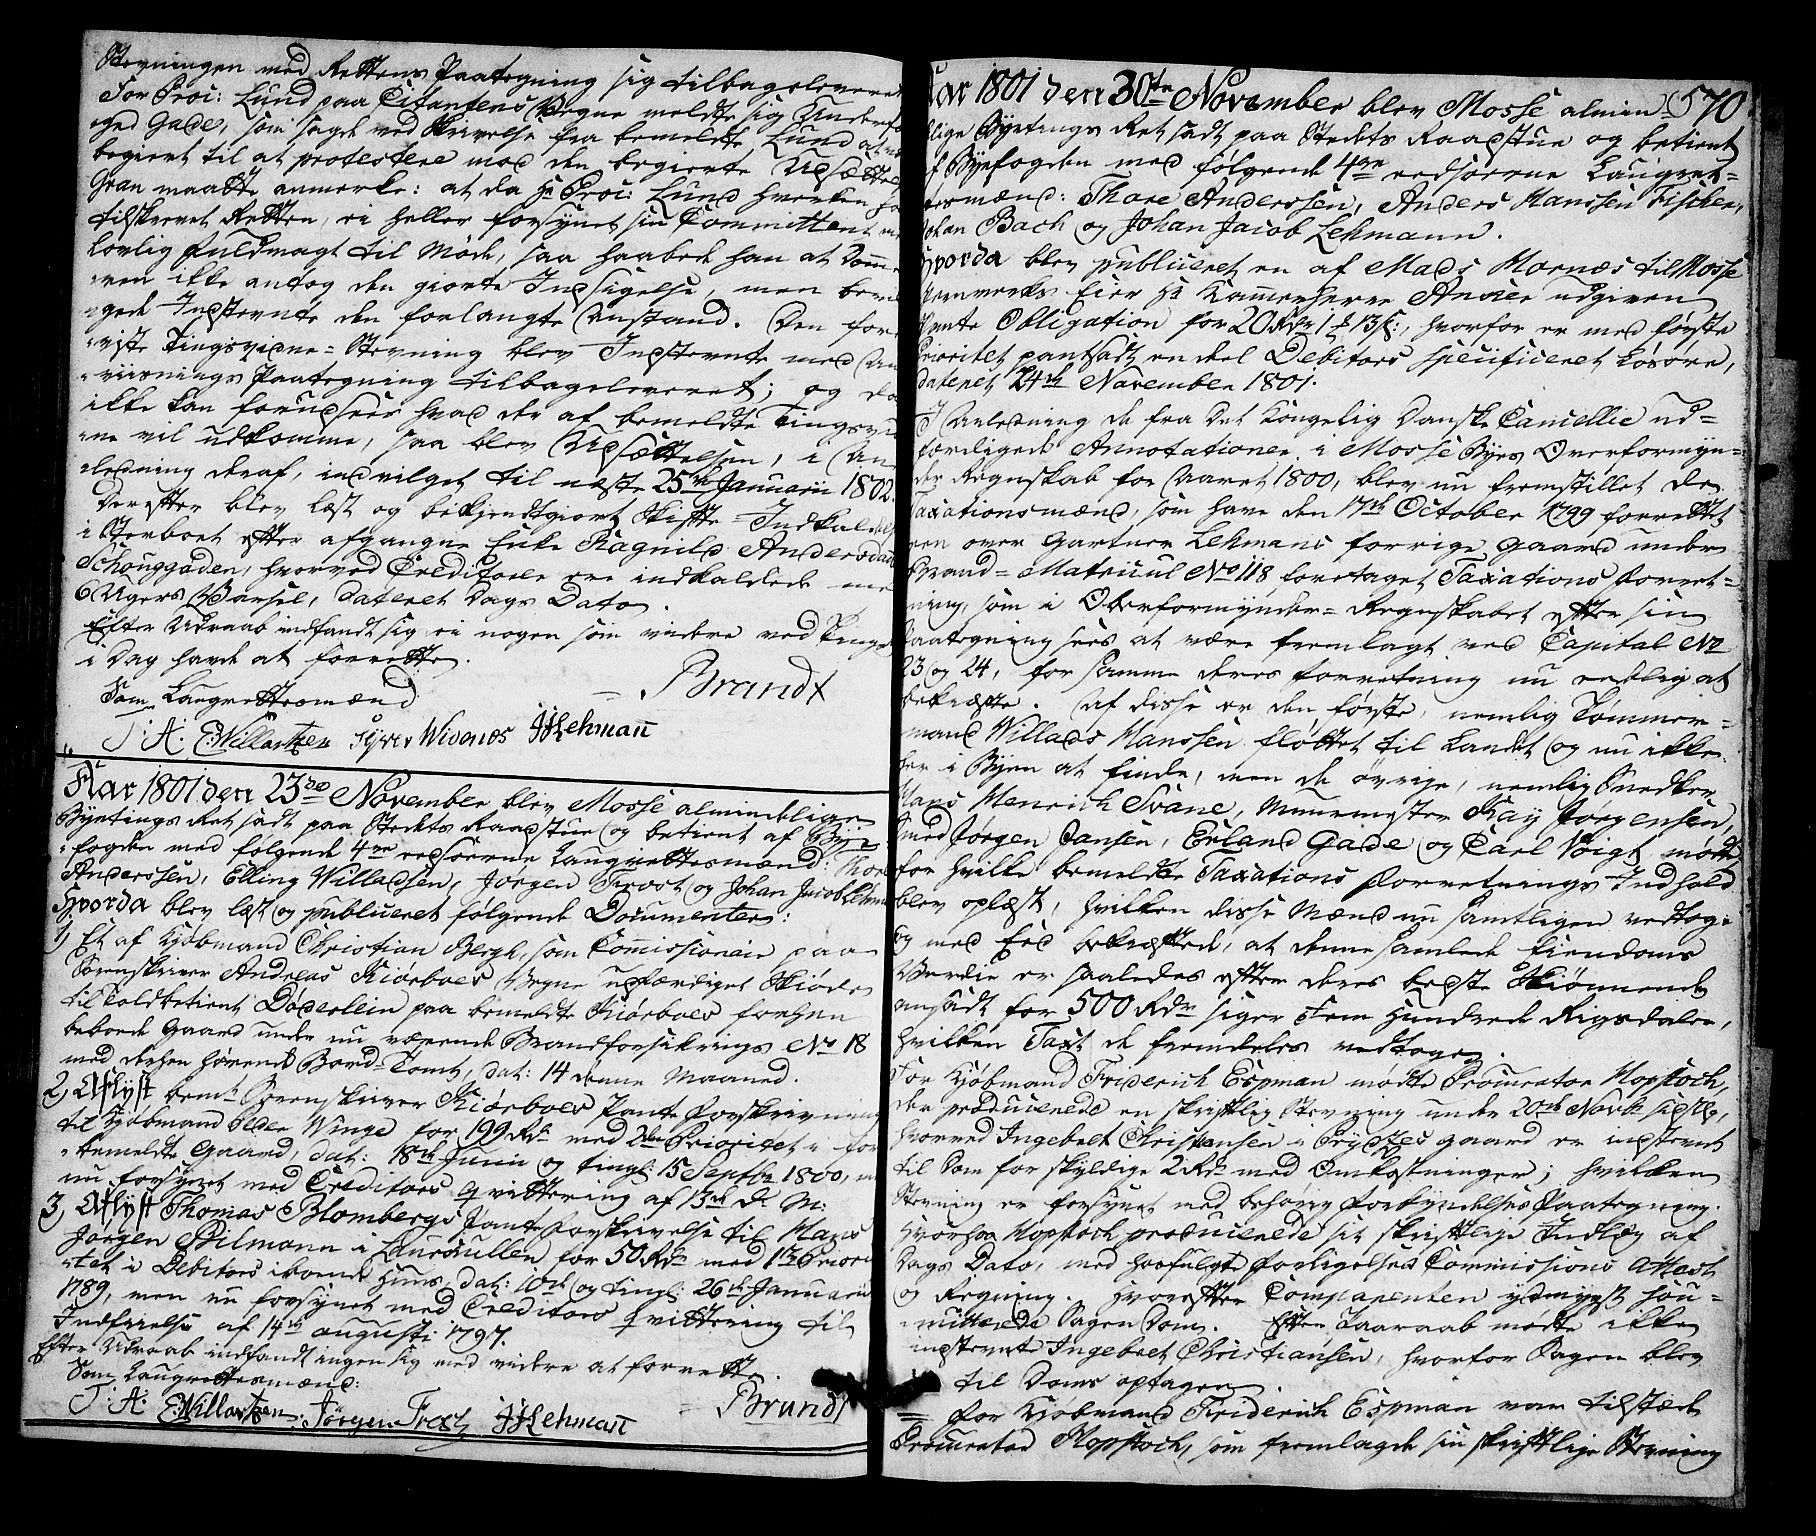 Stevningen med Rettens Paategning sig tilbageleveret
For Proc: Lund paa Citantens Vegne meldte sig Underfo
ged Gade, som sagde ved Skrivelse fra bemeldte Lund at
begiert til at protestere mod den begierte Udsættelse
Gran maatte anmerke: at da Hr Proc: Lund hverken
tilskrevet Retten, ei heller forsynet sin Committent med
lovlig Fuldmagt til Møde, saa haabede han at Dom
ren ikke antog den giorte Indsigelse, men
gede Indstevnte den forlangte Anstand. Den fore
viste Tingsvidne-Stevning blev Indstevnte med
viisnings Paategning tilbageleveret; og da
ikke kan forudsees hvad der af bemeldte Tingsvid
ne vil udkomme, saa blev Udsættelsen, i An
ledning deraf, indvilget til næste 25de Januarii 1802.
Derefter blev læst og bekjendtgiort Skifte-Indkaldelse
i Sterboet efter afgangne Enke Ragnild Andersdatter
Schouggaden, hvorved Creditorer ere indkaldede med
6 Ugers Varsel, dateret Dags Dato.
Efter Udraab indfandt sig ei nogen som videre ved Tinget
i Dag havde at forrette.
Som Laugrettesmænd
Brandt
T: A: E: Willartzen Siver Widenes JJLehmañ
Aar 1801 den 23de November blev Mosse almindelige
Byetings Ret sadt paa Stedets Raadstue og betient af Bye
fogden med følgende 4re eedsoerne Laugrettesmænd: Thore
Anderssen, Elling Willadsen, Jørgen Frost og Johan Jacob Lehman
Hvorda blev læst og publiceret følgende Documenter:
1) Et af Kjøbmand Christian Bergh, som Comissionair paa
Sorenskriver Andreas Kiørboes Vegne udfærdiget Skiøde
til Toldbetient Döderlein paa bemeldte Kiørboes forhen
beboede Gaard under nu værende Brandforsikrings No 18
med derhen hørende Bord-Tomt, dat: 14 denne Maaned.
2) Aflyst bemt Sorenskriver Kiørboes Pante Forskrivning
til Kjøbmand Peder Winge for 199 Rdr med 2den Prioritet i for
bemeldte Gaard, dat: 18de Junii og tingl: 15 Septbr 1800,
nu forsynet med Creditors Qvittering af 13de d: M:
3) Aflyst Thomas Blombergs Pante Forskrivelse til Hans
Jørgen Bilmann i Laurkullen for 50 Rdr med 1te Priori
tet i Debitors iboende Huus, dat: 10de og tingl: 26de Januarii
1789, men nu forsynet med Creditors Qvittering til
Indfrielse af 14de Augusti 1797.
Efter Udraab indfandt ingen sig med videre at forrette.
Som Laugrettesmænd:
Brandt
T: A: E: Willartzen. Jörgen Frost JJLehmañ
Aar 1801 den 30te November blev Mosse almin- (570
delige Byetings Ret sadt paa Stedets Raadstue og betient
af Byefogden med følgende 4re eedsoerne Laugret-
tesmænd: Thore Anderssen, Anders Hanssen Fischer,
Johan Bach og Johan Jacob Lehmann.
Hvorda blev publiceret en af Mads Hornæs til Mosse
Jernværks Eier Hr Kammerherre Ancker udgiven
Pante Obligation for 20 Rdr 1 # 13 s:, hvorfor er med første
Prioritet pantsadt en deel Debitors specificeret Løsøre,
dateret 24de November 1801.
I Anledning de fra det Kongelig Danske Cancellie ud-
færdigede Annotationer i Mosse Byes Overformyn-
der Regnskab for Aaret 1800, blev nu fremstillet de
Taxationsmænd, som have den 17de October 1799 forrettet
den over Gartner Lehmans forrige Gaard under
Brand-Matricul No 118 foretaget Taxations Forret-
ning, som i Overformynder-Regnskabet efter sin
Paategning sees at være fremlagt ved Capital No
23 og 24, for samme deres forretning nu eedelig at
bekræfte. Af disse er den første, nemlig Tømmer-
mand Willads Hanssen fløttet til Landet og nu ikke
her i Byen at finde, men de øvrige, nemlig Snedker
Hans Henrich Svane, Muurmester Kay Jørgensen,
Smed Jørgen Jansen, Erland Gade og Carl Voigt mødte,
for hvilke bemeldte Taxations Forretnings Indhold
blev oplæst, hvilken disse Mænd nu samtligen vedtog
og med Eed bekræftede, at denne samlede Eiendoms
Værdie er saaledes efter deres beste Skiønnende
ansadt for 500 Rdr siger Fem Hundrede Rigsdaler,
hvilken Taxt de fremdeles vedtoge.
For Kjøbmand Friderich Espman mødte Procurator Hopstock,
der producerede en skriftlig Stevning under 20de Novbr sidstl:,
hvorved Ingebret Christiansen i Prydzes gaard er indstevnt
til Dom for skyldige 2 Rdr med Omkostninger; hvilken
Stevning er forsynet med behørig Forkyndelses Paategning.
Hvorpaa Hopstock producerede sit skriftlige Indlæg af
Dags Dato, med hosfulgte Forligelses Commissions Attest
og Regning. Hvorefter Comparenten ydmygst sou-
mitterede Sagen Dom. Efter Paaraab mødte ikke
indstevnte Ingebret Christiansen, hvorfor Sagen blev
til Doms optagen.
For Kjøbmand Friderich Espman var tilstæde
Procurator Hopstock, som fremlagde sin skriftlige Stevning